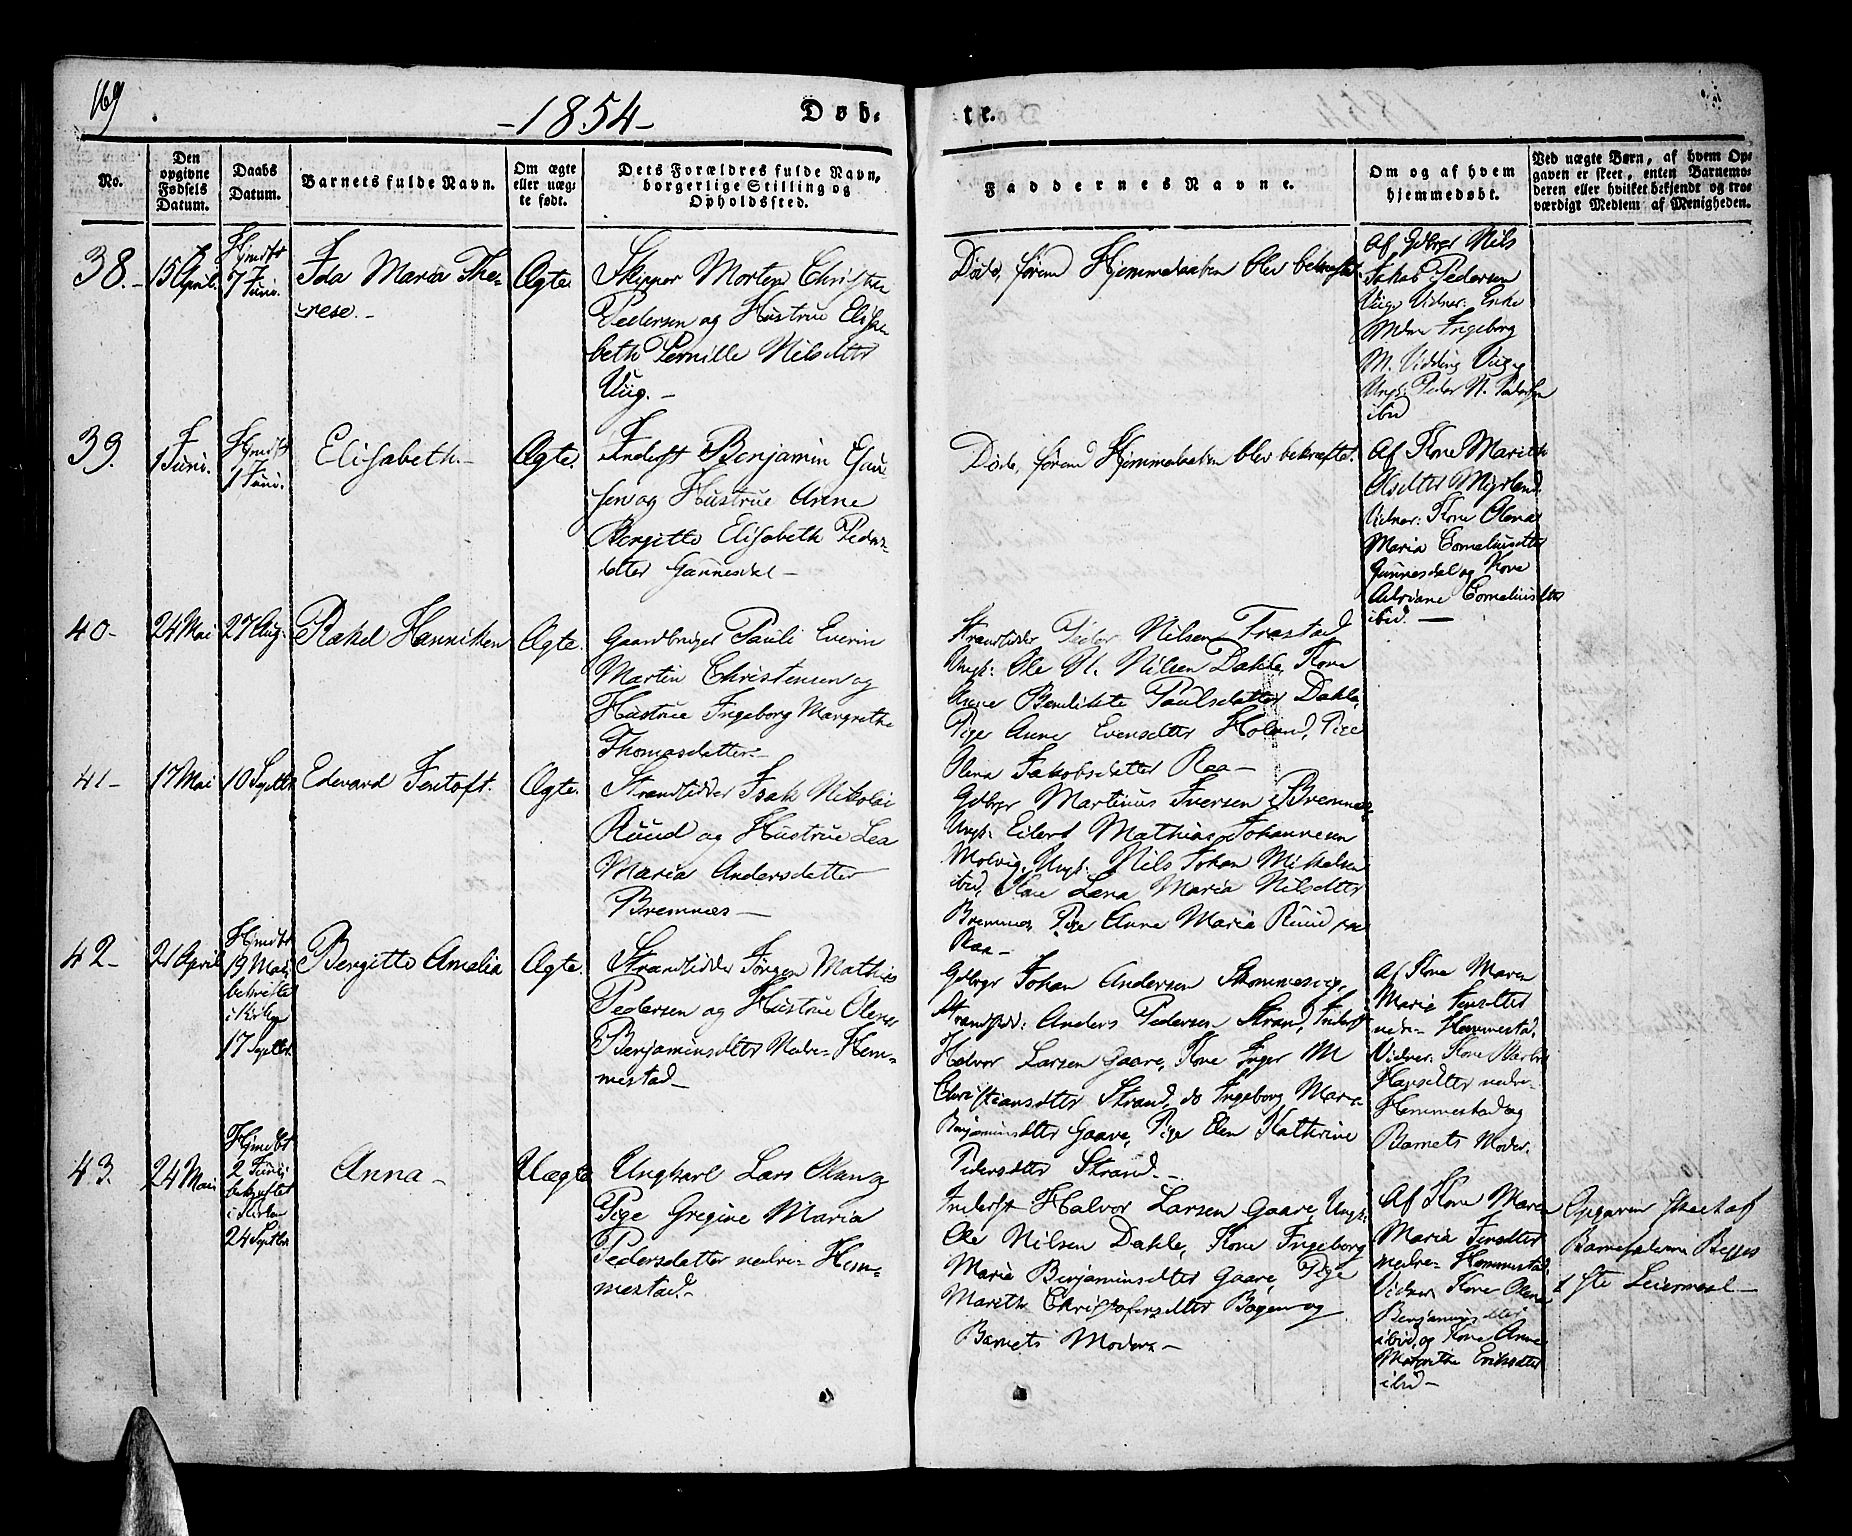 169
-1854-
Døb-
te.
No.
Den opgivne Fødsels Datum.
Daabs Datum.
Barnets fulde Navn.
Om ægte eller uæg-te født.
Dets Forældres fulde Navn, borgerlige Stilling og Opholdssted.
Faddernes Navne.
Om og af hvem hjemmedøbt.
Ved uægte Børn, af hvem Op-gaven er skeet, enten Barnemo-deren eller hvilket bekjendt og tro-værdigt Medlem af Menigheden.
38.
15 April.
Hjmdbt
7 Juni.
Ida Maria The-
rese.
Ægte
Skipper Morten Christian
Pedersen og Hustrue Elisa-
beth Pernille Nilsdtter
Viig.
Døde, førend Hjemmedaaben blev bekræftet.
Af Gdbrgr Nils
Jakob Pedersen
Viig Vidner: Enke
Mdme Ingeborg
M. Widding Viig og
Ungk: Peder N. Pedersen
ibid
39.
1 Juni.
Hjmdbt
1 Juni.
Elisabeth.
Ægte.
Inderst Benjamin
sen og Hustrue Anne
Bergitte Elisabeth Peders-
detter Gunnesdal
Døde, førend Hjemmedaaben blev bekræftet.
Af Kone Marith
Olsdtter Myrland.
Vidner: Kone Olena
Maria Corneliusdtter
Gunnesdal og Kone
Adriane Corneliusdtter
ibid.
40-
24 Mai
27 Aug.
Rakel Hanniken
Ægte.
Gaardbruger Pauli Everin
Martin Christensen og
Hustrue Ingeborg Margrethe
Thomasdatter
Strandsidder Peder Nilsen Trastad
Ungk: Ole N. Nilsen Dahle, Kone
Anne Bendikte Paulsdatter Dahle,
Pige Anne Evensdtter Holand, Pige
Olena Jakobsdatter Raa-
41-
17 Mai
10 Septbr
Edevard Jentoft.
Ægte.
Strandsidder Isak Nikolai
Ruud og Hustrue Lea
Maria Andersdatter
Bremnæs
Gdbrgr Martinus Iversen Bremnæs,
Ungk: Eilert Mathias Johannesen
Molvig, Ungk: Nils Johan Mikelsen
ibid, Kone Lena Maria Nilsdtter
Bremnæs, Pige Anne Maria Ruud
Raa-
42-
21 April
Hjmdbt
19 Mai,
bekræftet
i Kirken
17 Septbr.
Bergitte Amalia
Ægte.
Strandsidder Jørgen Mathias
Pedersen og Hustrue Olena
Benjaminsdtter Nedre- Hem-
mestad
Gdbrgr Johan Andersen Skommesvig,
Strandsid: Anders Pedersen Strand, Inderst
Halvor Larsen Gaare, Kone Inger M
Christiansdtter Strand, do Ingeborg Maria
Benjaminsdtter Gaare, Pige Elen Kathrine
Pedersdtter Strand.
Af Kone Maren
Maria Jensdtter
nedre- Hemmestad.
Vidner: Kone
Hansdtter nedre-
Hemmestad og
Barnets Moder.
43.
24 Mai
Hjmdbt
2 Juni
bekræftet
i Kirken
24 Septbr
Anna
Uægte
Ungkarl Lars Olsen og
Pige Gregine Maria
Pedersdatter nedre- Hem-
mestad.
Inderst Halvor Larsen Gaare, Ungk:
Ole Nilsen Dahle, Kone Ingeborg
Maria Benjaminsdtter Gaare, Pige
Marith Christofersdtter Bogen og
Barnets Moder
Af Kone Maren
Maria Jensdtter
nedre- Hemmestad.
Vidner: Kone Olena
Benjaminsdtter
ibid, og Kone Anne
Margrethe Eriksdtter
ibid
Opgaven skeet af
Barnefaderen Begges
1ste Leiermaal